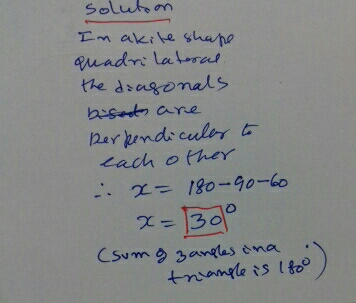 Solution
In a kite shape
quadrilateral
the diagonals
bisects are
perpendicular to
each other
∴ x = 180-90-60
x = 30°
(sum of 3 angles in a
triangle is 180°)